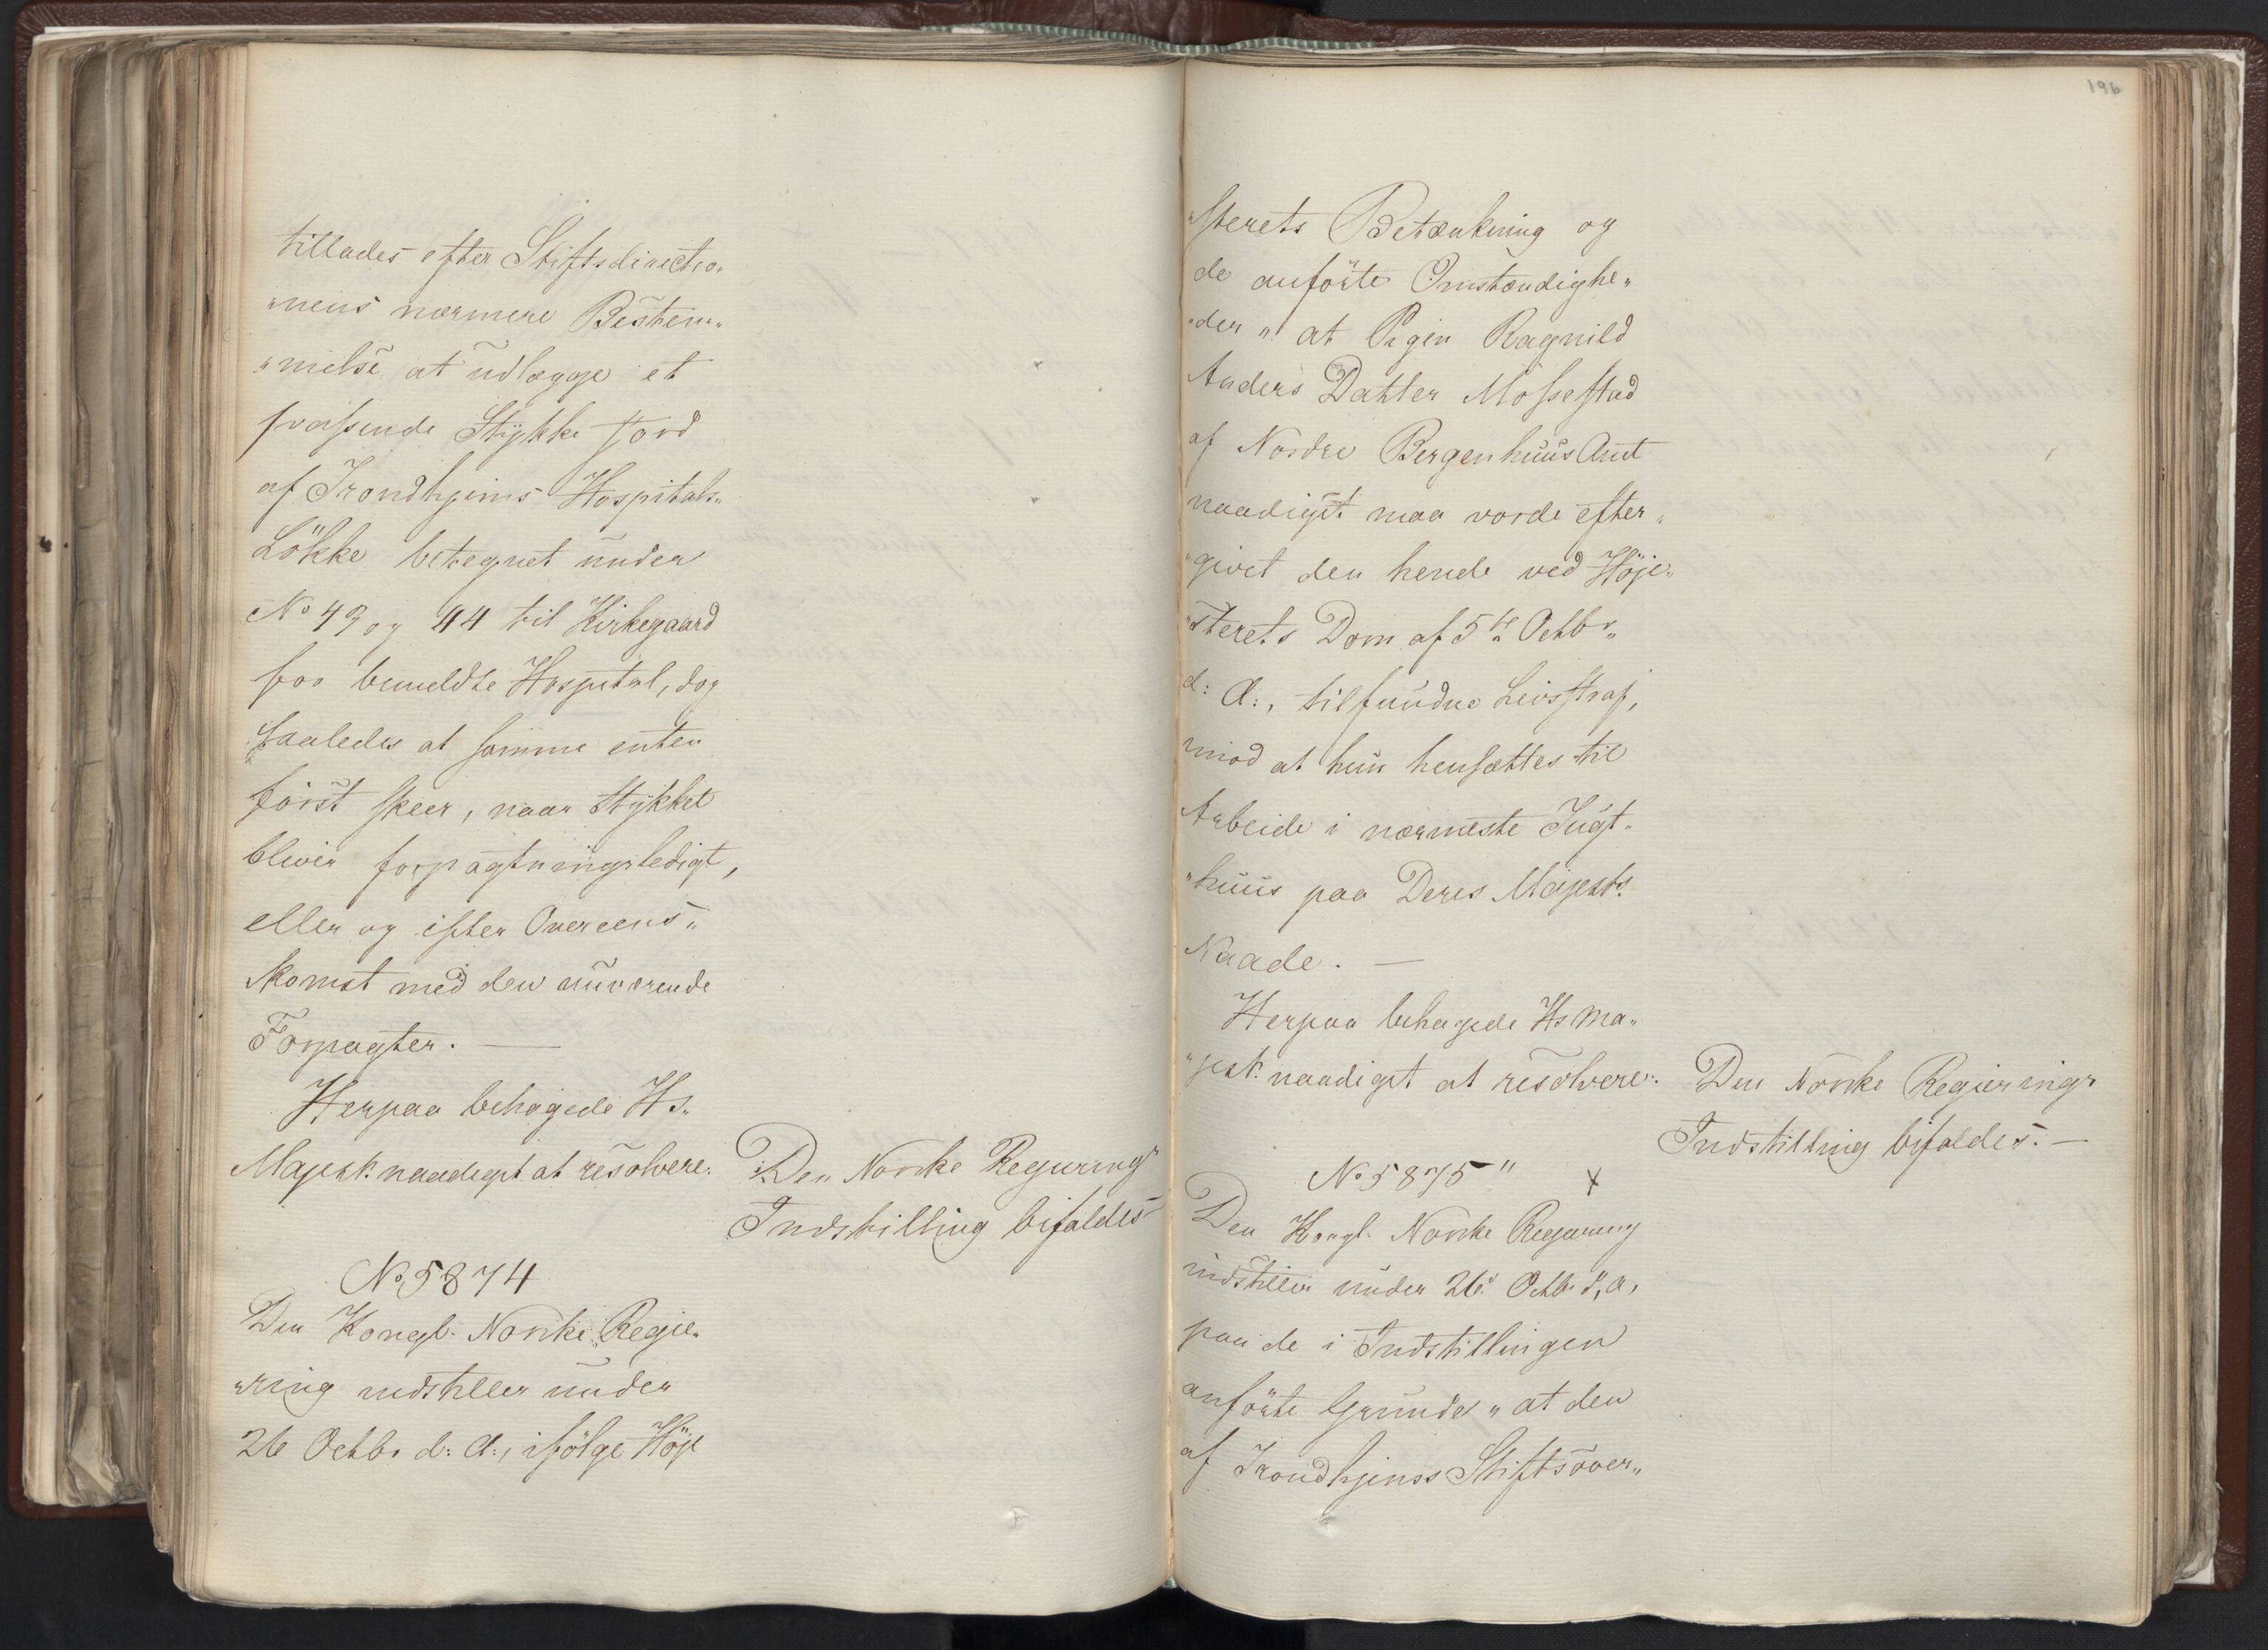 tillades efter Stiftsdirectio„
„nens nærmere Bestem„
„melse at udlægge et
passende Stÿkke Jord
af Trondhjems Hospitals„
Lökke betegnet under
No 43 og 44 til Kirkegaard
for bemeldte Hospital, dog
saaledes at samme enten
först skeer, naar Stÿkket
bliver forpagtningsledigt,
eller og efter Overeens„
komst med den nuværende
Forpagter. —
Herpaa behagede Hs„
Majest: naadigst at resolvere:
Den Norske Regjerings
Indstilling bifaldes
No 5874
Den Kongl. Norske Regje„
„ring indstiller under
26 Octbr d: A:, ifölge Höje
196
„sterets Betænkning og
de anförte Omstændighe„
„der „ at Pigen Ragnild
Anders Datter Mössestad
af Nordre Bergenhuus Amt
naadigst maa vorde efter„
„givet den hende ved Höje„
„sterets Dom af 5te Octbr„
d: A:, tilfundne Livsstraf,
mod at hun hensættes til
Arbeide i nærmeste Tugt„
„huus paa Deres Majests
Naade. —
Herpaa behagede Hs Ma„
„jest: naadigst at resolvere:
Den Norske Regjerings
Indstilling bifaldes. —
No 5875 "
x
Den Kongl. Norske Regjering
indstiller under 26 Octbr d, a,
paa de i Indstillingen
anförte Grunde „ at den
af Trondhjems Stiftsöver„